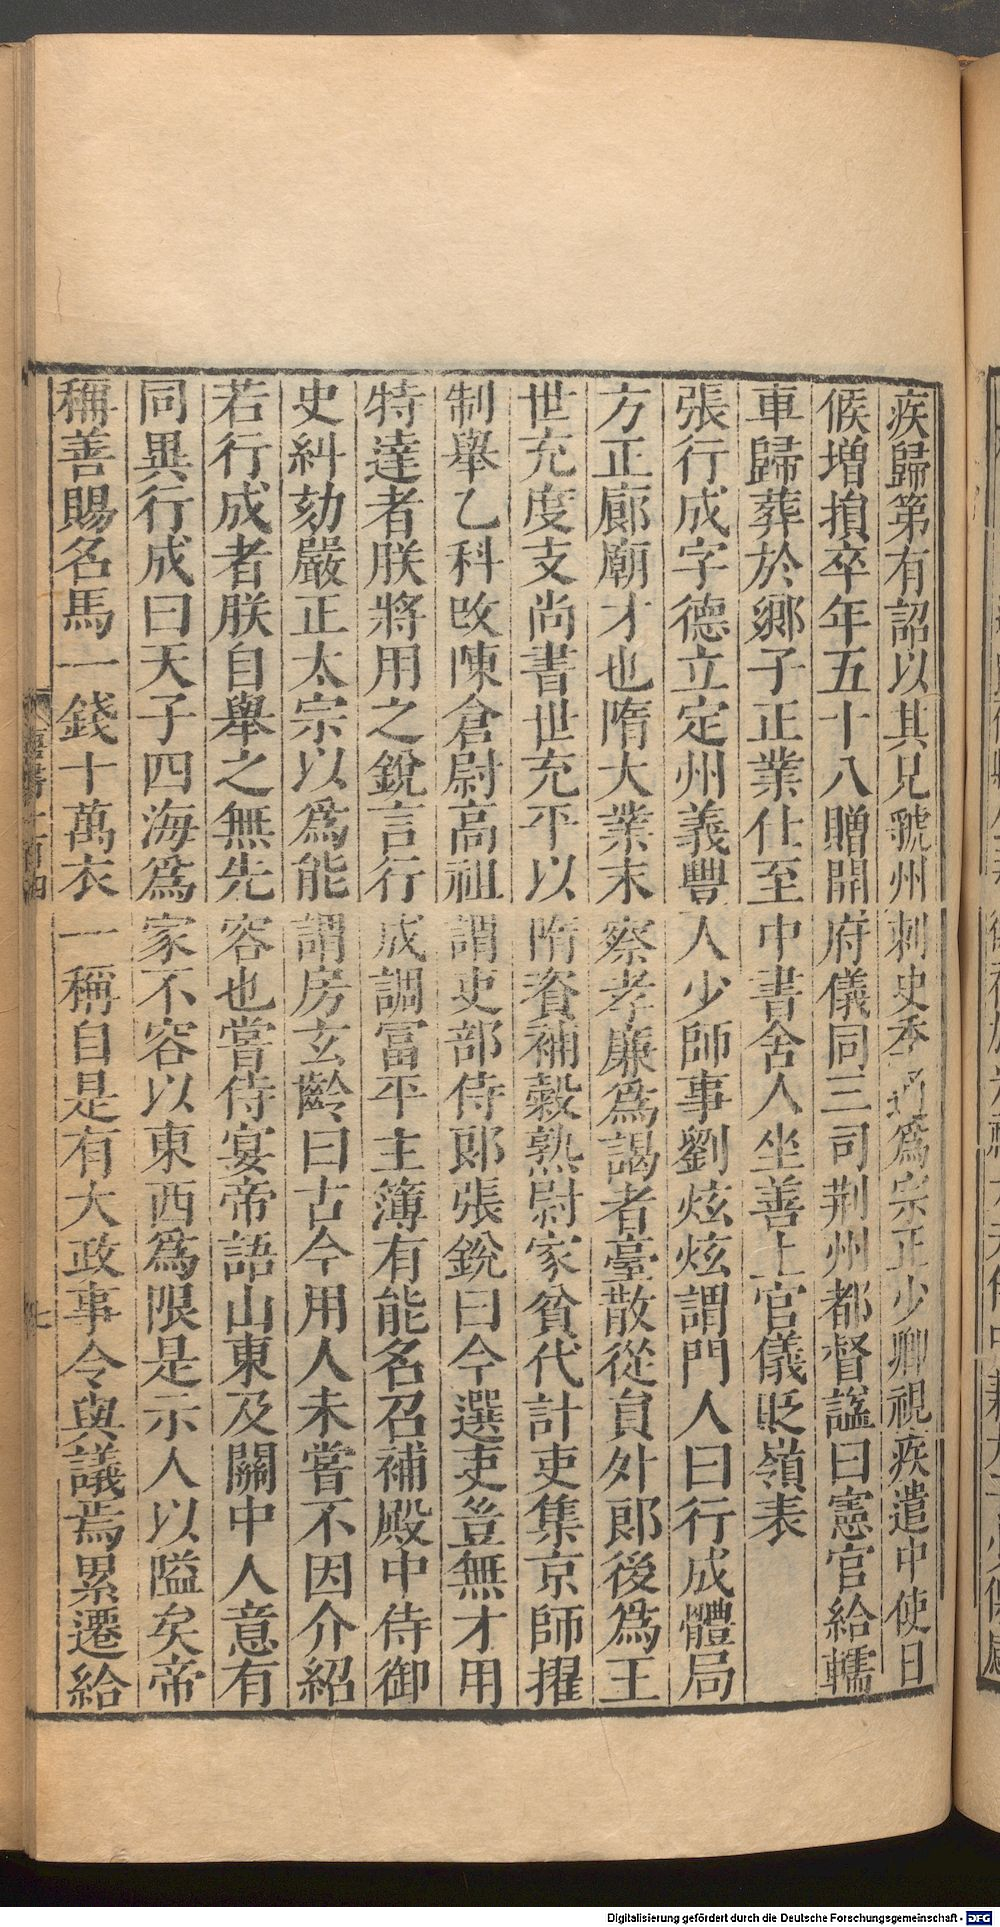 疾歸第有詔以其兄虢州刺史季通爲宗正少卿視疾遣中使日
候增損卒年五十八贈開府儀同三司荆州都督謚曰憲官給轜
車歸葬於鄉子正業仕至中書舍人坐善上官儀貶嶺表
張行成字德立定州義豐人少師事劉炫炫謂門人曰行成體局
方正廊廟才也隋大業末察孝廉爲謁者臺散從貟外郎後爲王
世充度支尚書世充平以隋資補穀熟尉家貧代計吏集京師擢
制舉乙科改陳倉尉高祖謂吏部侍郎張銳曰今選吏豈無才用
特達者朕將用之銳言行成調富平主簿有能名召補殿中侍御
史糾劾嚴正太宗以爲能謂房玄齡曰古今用人未嘗不因介紹
若行成者朕自舉之無先容也嘗侍宴帝語山東及關中人意有
同異行成曰天子四海爲家不容以東西爲限是示人以隘矣帝
稱善賜名馬一錢十萬衣一稱自是有大政事令與議焉累遷給
七
Digitalisierung gefördert durch die Deutsche Forschungsgemeinschaft - DFG